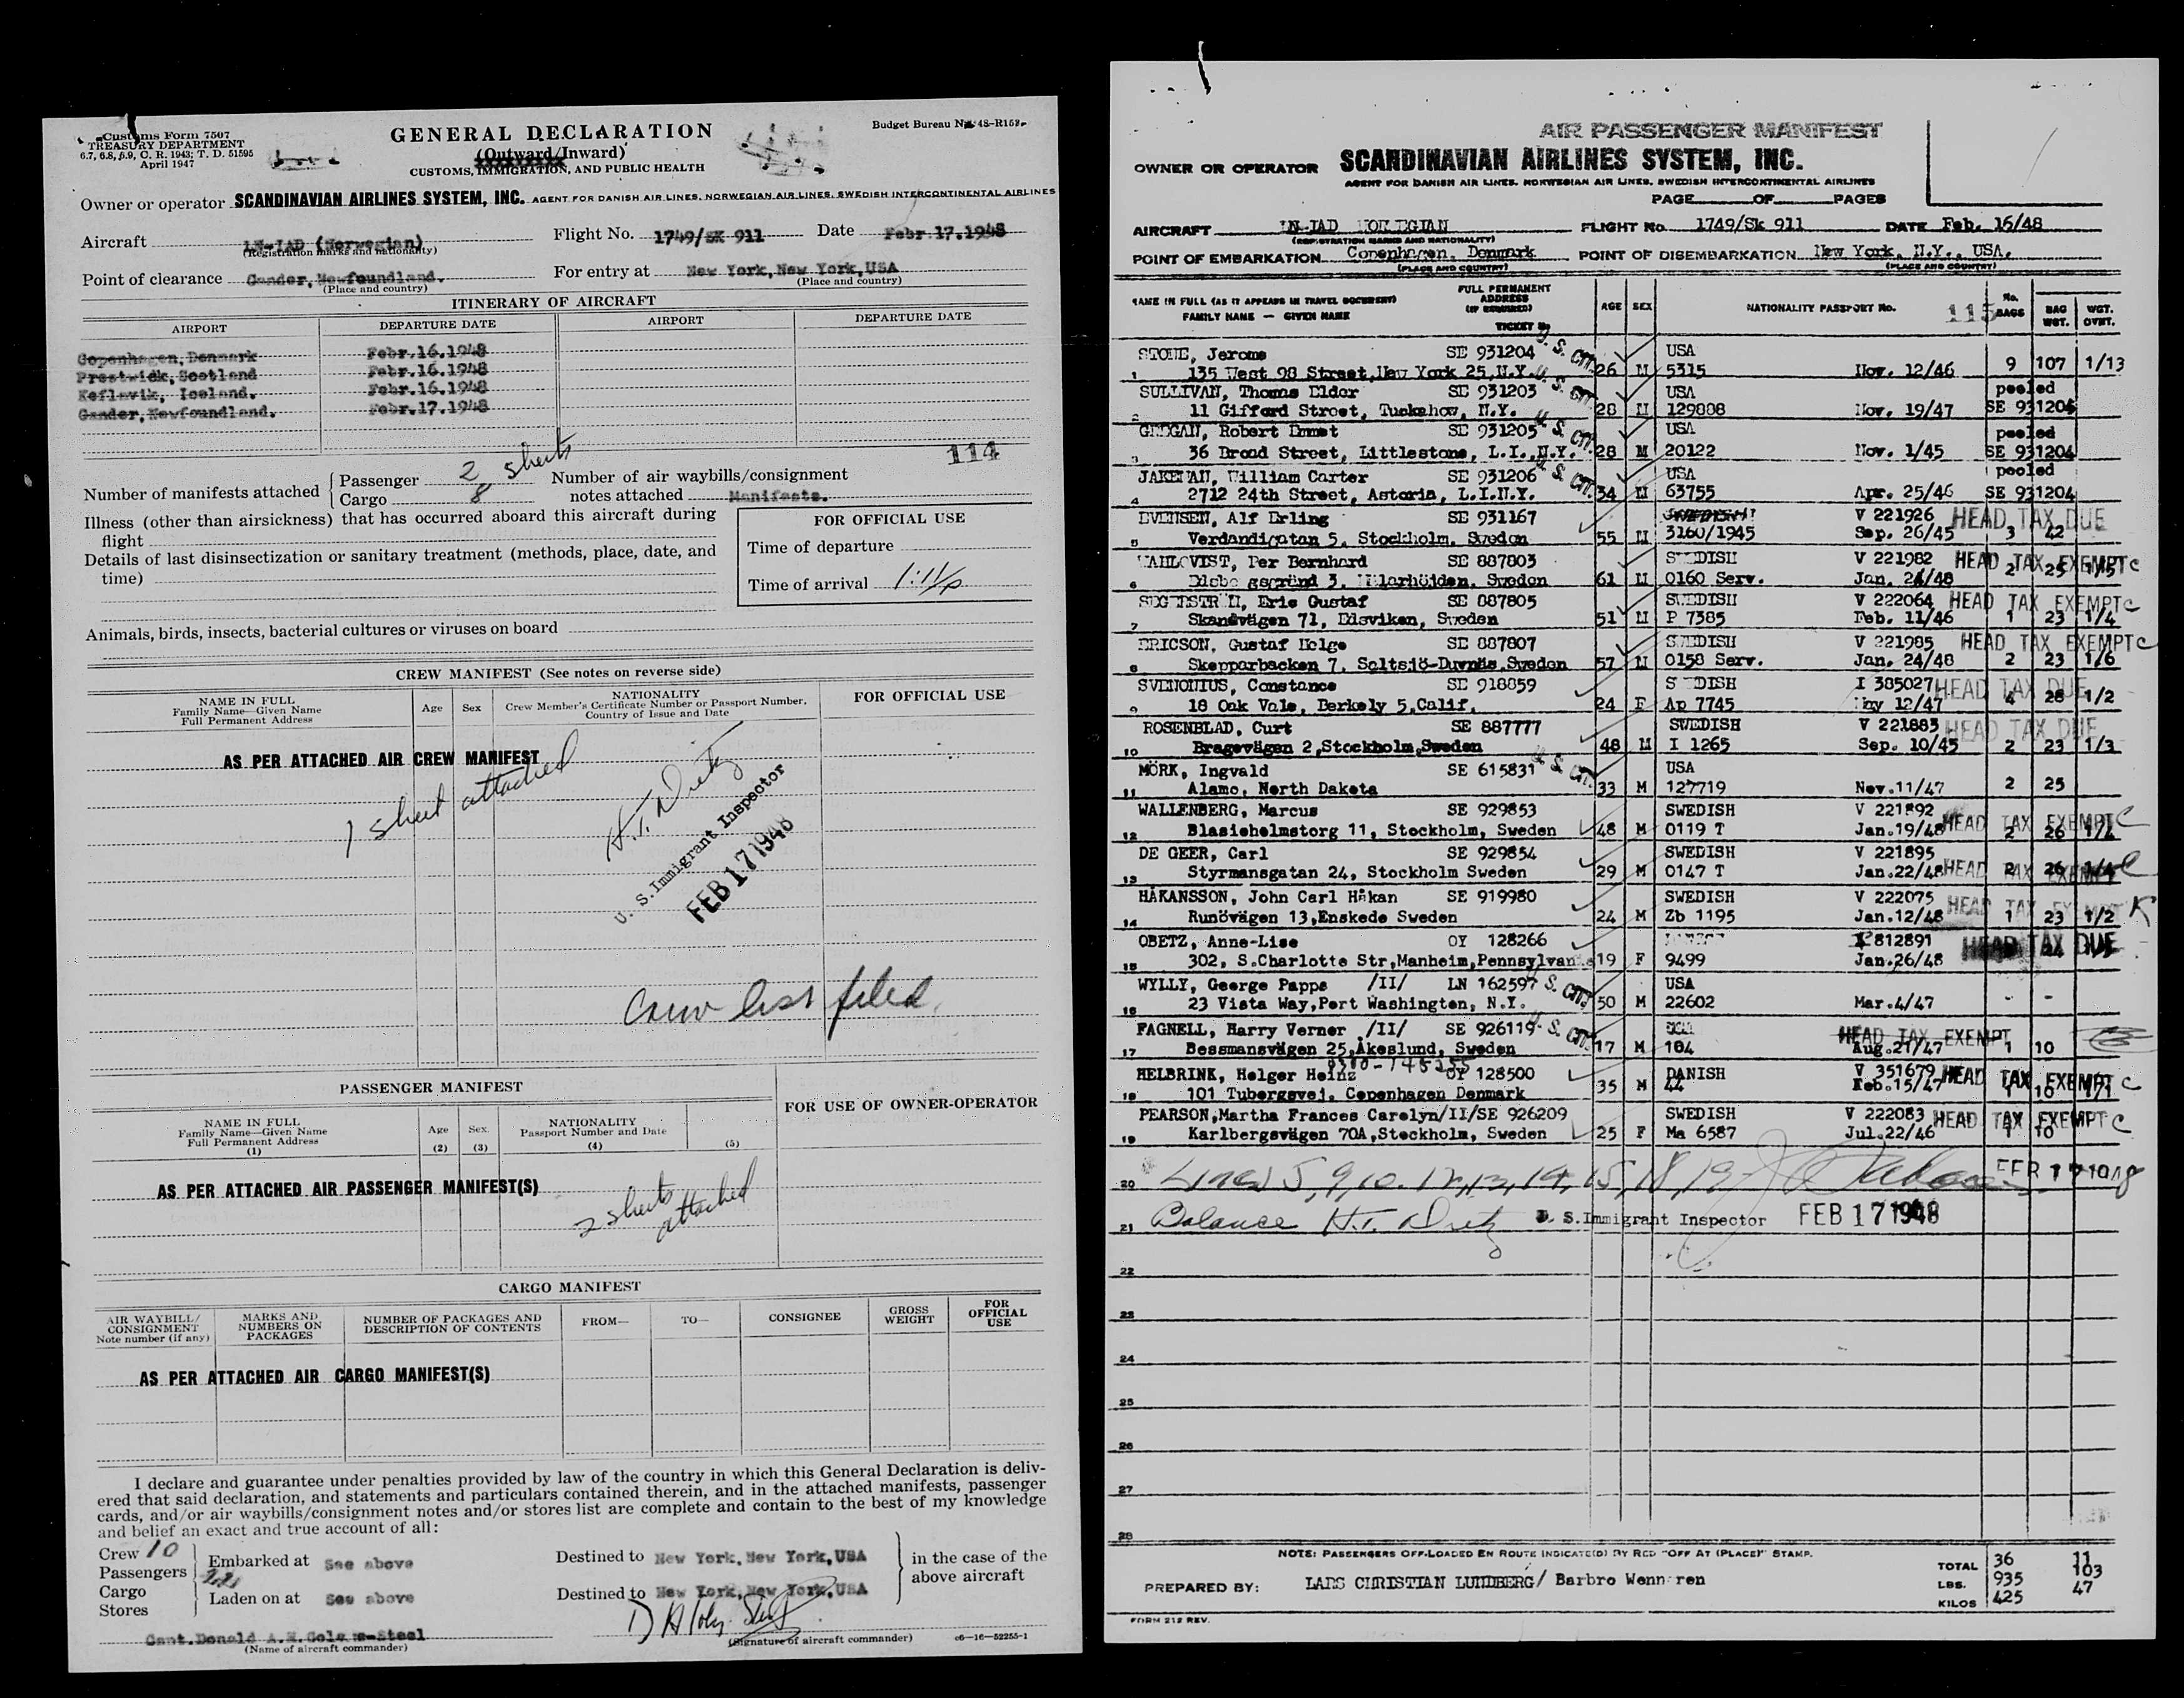 Customs Form 7507
TREASURY DEPARTMENT
6.7, 6.8, 6.9, C. R. 1943; T. D. 51595
April 1947
GENERAL DECLARATION
(Outward/Inward)
CUSTOMS, IMMIGRATION, AND PUBLIC HEALTH
Budget Bureau No. 48-R152
Owner or operator SCANDINAVIAN AIRLINES SYSTEM, INC. AGENT FOR DANISH AIR LINES, NORWEGIAN AIR LINES, SWEDISH INTERCONTINENTAL AIRLINES
Aircraft LN-IAD (Norwegian) Flight No. 1749/SK 911 Date Febr.17.1948
(Registration marks and nationality)
Point of clearance Gander, Newfoundland. For entry at New York, New York, USA
(Place and country) (Place and country)
ITINERARY OF AIRCRAFT
AIRPORT DEPARTURE DATE AIRPORT DEPARTURE DATE
Copenhagen, Denmark Febr.16.1948
Prestwick, Scotland Febr.16.1948
Keflavik, Iceland. Febr.16.1948
Gander, Newfoundland. Febr.17.1948
114
Number of manifests attached { Passenger 2 sheets Number of air waybills/consignment
Cargo 8 notes attached Manifests.
Illness (other than airsickness) that has occurred aboard this aircraft during
flight
Details of last disinsectization or sanitary treatment (methods, place, date, and
time)
FOR OFFICIAL USE
Time of departure
Time of arrival 1:11p
Animals, birds, insects, bacterial cultures or viruses on board
CREW MANIFEST (See notes on reverse side)
NAME IN FULL
Family Name—Given Name
Full Permanent Address
Age Sex
NATIONALITY
Crew Member's Certificate Number or Passport Number,
Country of Issue and Date
FOR OFFICIAL USE
AS PER ATTACHED AIR CREW MANIFEST
1 sheet attached
H.T. Dietz
U. S. Immigrant Inspector
FEB 17 1948
Crew list filed.
PASSENGER MANIFEST
NAME IN FULL
Family Name—Given Name
Full Permanent Address
(1)
Age
(2)
Sex
(3)
NATIONALITY
Passport Number and Date
(4) (5)
FOR USE OF OWNER-OPERATOR
AS PER ATTACHED AIR PASSENGER MANIFEST(S)
2 sheets
attached
CARGO MANIFEST
AIR WAYBILL/
CONSIGNMENT
Note number (if any)
MARKS AND
NUMBERS ON
PACKAGES
NUMBER OF PACKAGES AND
DESCRIPTION OF CONTENTS
FROM— TO— CONSIGNEE
GROSS
WEIGHT
FOR
OFFICIAL
USE
AS PER ATTACHED AIR CARGO MANIFEST(S)
I declare and guarantee under penalties provided by law of the country in which this General Declaration is deliv-
ered that said declaration, and statements and particulars contained therein, and in the attached manifests, passenger
cards, and/or air waybills/consignment notes and/or stores list are complete and contain to the best of my knowledge
and belief an exact and true account of all:
Crew 10
Passengers
Cargo
Stores
Embarked at See above Destined to New York, New York, USA
Laden on at See above Destined to New York, New York, USA
in the case of the
above aircraft
Capt. Donald A.H.
(Name of aircraft commander) (Signature of aircraft commander) c6-16-52255-1
AIR PASSENGER MANIFEST
OWNER OR OPERATOR SCANDINAVIAN AIRLINES SYSTEM, INC.
AGENT FOR DANISH AIR LINES, NORWEGIAN AIR LINES, SWEDISH INTERCONTINENTAL AIRLINES
PAGE OF PAGES
AIRCRAFT LN-IAD NORWEGIAN FLIGHT No. 1749/Sk 911 DATE Feb. 16/48
(REGISTRATION MARKS AND NATIONALITY)
POINT OF EMBARKATION Copenhagen, Denmark POINT OF DISEMBARKATION New York, N.Y., USA.
(PLACE AND COUNTRY) (PLACE AND COUNTRY)
NAME IN FULL (AS IT APPEARS IN TRAVEL DOCUMENT)
FAMILY NAME — GIVEN NAME
FULL PERMANENT
ADDRESS
(IF REQUIRED)
TICKET No
AGE SEX NATIONALITY PASSPORT No. 115
No. BAGS BAG WGT. WGT. OVWT.
STONE, Jerome SE 931204 U. S. CIT. USA
1 135 West 98 Street, New York 25, N.Y. 26 M 5315 Nov. 12/46 9 107 1/13
SULLIVAN, Thomas Elder SE 931203 U. S. CIT. USA pooled
2 11 Gifford Street, Tuckahow, N.Y. 28 M 129888 Nov. 19/47 SE 931204
GEOGAN, Robert Emmet SE 931205 U. S. CIT. USA pooled
3 36 Broad Street, Littlestone, L.I., N.Y. 28 M 20122 Nov. 1/45 SE 931204
JAKEMAN, William Carter SE 931206 U. S. CIT. USA pooled
4 2712 24th Street, Astoria, L.I.N.Y. 34 M 63755 Apr. 25/46 SE 931204
EVENSEN, Alf Erling SE 931167 V 221926 HEAD TAX DUE
5 Verdandigatan 5, Stockholm, Sweden 55 M 3160/1945 Sep. 26/45 3 42
WAHLQVIST, Per Bernhard SE 887803 SWEDISH V 221982 HEAD TAX EXEMPT C
6 3, Mälarhöjden, Sweden 61 M 0160 Serv. Jan. 24/48 2 25 1/5
SEGERSTRÖM, Eric Gustaf SE 887805 SWEDISH V 222064 HEAD TAX EXEMPT C
7 Skandvägen 71, Edsviken, Sweden 51 M P 7385 Feb. 11/46 1 23 1/4
ERICSON, Gustaf Helge SE 887807 SWEDISH V 221985 HEAD TAX EXEMPT C
8 Skepparbacken 7, Saltsjö-Duvnäs, Sweden 57 M 0158 Serv. Jan. 24/48 2 23 1/6
SVENONIUS, Constance SE 918859 SWEDISH I 385027 HEAD TAX DUE
9 18 Oak Vale, Berkely 5, Calif. 24 F Ap 7745 May 12/47 4 28 1/2
ROSENBLAD, Curt SE 887777 SWEDISH V 221883 HEAD TAX DUE
10 Bragevägen 2, Stockholm, Sweden 48 M I 1265 Sep. 10/45 2 23 1/3
MÖRK, Ingvald SE 615831 U. S. CIT. USA
11 Alamo, North Dakota 33 M 127719 Nov.11/47 2 25
WALLENBERG, Marcus SE 929853 SWEDISH V 221892 HEAD TAX EXEMPT C
12 Blasieholmstorg 11, Stockholm, Sweden 48 M 0119 T Jan.19/48 2 26 1/4
DE GEER, Carl SE 929854 SWEDISH V 221895 HEAD TAX EXEMPT C
13 Styrmansgatan 24, Stockholm Sweden 29 M 0147 T Jan.22/48 2 26 1/4
HÅKANSSON, John Carl Håkan SE 919980 SWEDISH V 222075 HEAD TAX EXEMPT K
14 Runövägen 13, Enskede Sweden 24 M Zb 1195 Jan.12/48 1 23 1/2
OBETZ, Anne-Lise OY 128266 812891 HEAD TAX DUE
15 302, S.Charlotte Str, Manheim, Pennsylvania 19 F 9499 Jan.26/48
WYLLY, George Papps /II/ LN 162597 U. S. CIT. USA
16 23 Vista Way, Port Washington, N.Y. 50 M 22602 Mar.4/47 - -
FAGNELL, Harry Verner /II/ SE 926119 U. S. CIT. HEAD TAX EXEMPT
17 Bessmansvägen 25, Åkeslund, Sweden 17 M 184 Aug.21/47 1 10
HELBRINK, Helger Heinz OY 128500 DANISH V 351679 HEAD TAX EXEMPT C
18 101 Tubergsvej, Copenhagen Denmark 35 M 44 Feb.15/47 1 10 1/1
PEARSON, Martha Frances Carolyn/II/SE 926209 SWEDISH V 222083 HEAD TAX EXEMPT C
19 Karlbergsvägen 70A, Stockholm, Sweden 25 F Ma 6587 Jul.22/46 1 10
20 Lines 5, 9, 10. 12, 13, 14, 15, 18, 19 FEB 17 1948
21 Balance H.T. Dietz U. S. Immigrant Inspector FEB 17 1948
22
23
24
25
26
27
28
NOTE: PASSENGERS OFF-LOADED EN ROUTE INDICATE(D) BY RED "OFF AT (PLACE)" STAMP.
PREPARED BY: LARS CHRISTIAN LUNDBERG/ Barbro Wennren
TOTAL 36 11
LBS. 935 103
KILOS 425 47
FORM 212 REV.